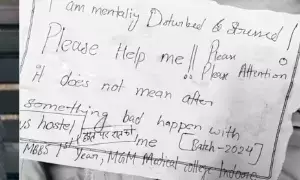 I am mentally Disturbed & stressed!
Please Help me!! Please
Please Attention
it does not mean after
something bad happen with
us hostel me [Batch-2024]
MBBS 1st Year, MGM Medical college Indore